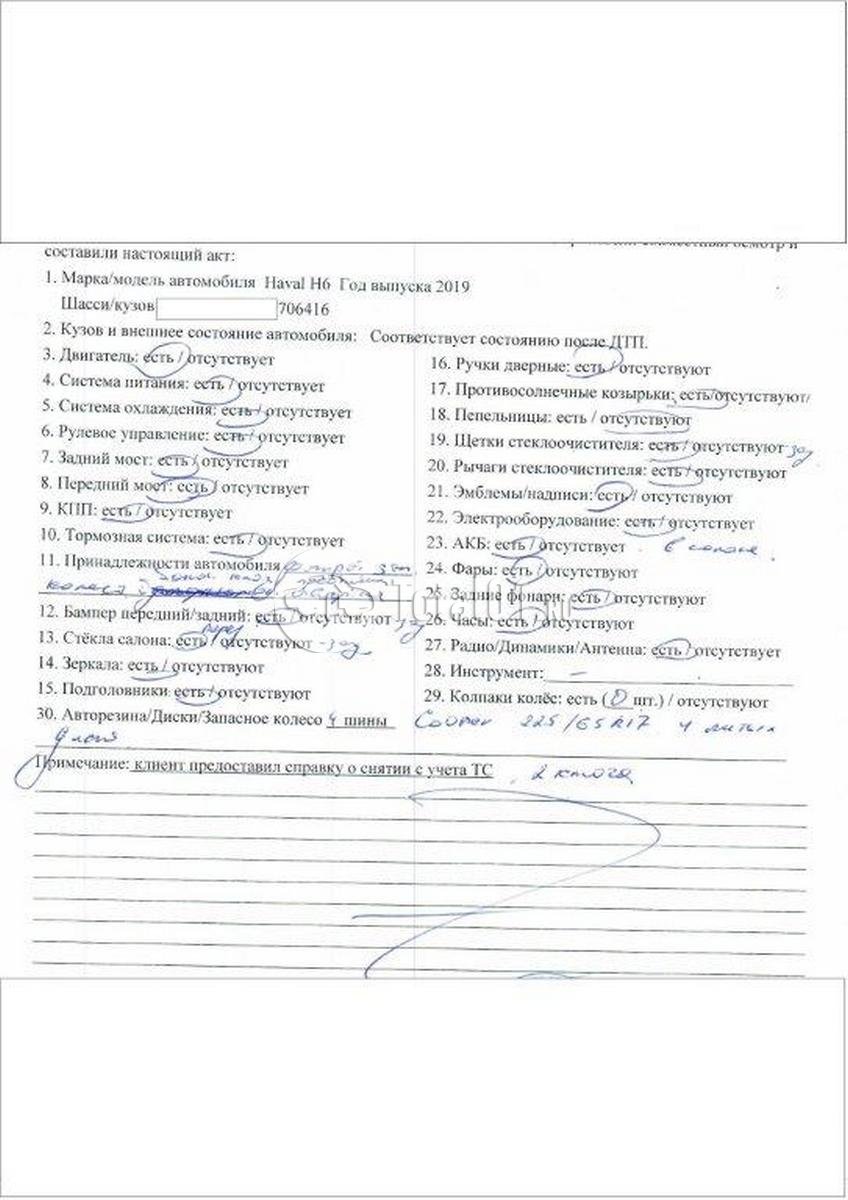 составили настоящий акт:
1. Марка/модель автомобиля Haval H6 Год выпуска 2019
Шасси/кузов 706416
2. Кузов и внешнее состояние автомобиля: Соответствует состоянию после ДТП.
3. Двигатель: есть / отсутствует
4. Система питания: есть / отсутствует
5. Система охлаждения: есть / отсутствует
6. Рулевое управление: есть / отсутствует
7. Задний мост: есть / отсутствует
8. Передний мост: есть / отсутствует
9. КПП: есть / отсутствует
10. Тормозная система: есть / отсутствует
11. Принадлежности автомобиля
колеса
12. Бампер передний/задний: есть / отсутствуют - зад
13. Стёкла салона: есть / отсутствуют - зад
перед
14. Зеркала: есть / отсутствуют
15. Подголовники: есть / отсутствуют
16. Ручки дверные: есть / отсутствуют
17. Противосолнечные козырьки: есть/отсутствуют/
18. Пепельницы: есть / отсутствуют
19. Щетки стеклоочистителя: есть / отсутствуют - зад
20. Рычаги стеклоочистителя: есть / отсутствуют
21. Эмблемы/надписи: есть / отсутствуют
22. Электрооборудование: есть / отсутствует
23. АКБ: есть / отсутствует в салоне.
24. Фары: есть / отсутствуют
25. Задние фонари: есть / отсутствуют
26. Часы: есть / отсутствуют
27. Радио/Динамики/Антенна: есть / отсутствует
28. Инструмент: –
29. Колпаки колёс: есть (0 шт.) / отсутствуют
30. Авторезина/Диски/Запасное колесо 4 шины 225/65 R17 4 литых
Примечание: клиент предоставил справку о снятии с учета ТС, 2 ключа
Total01.ru